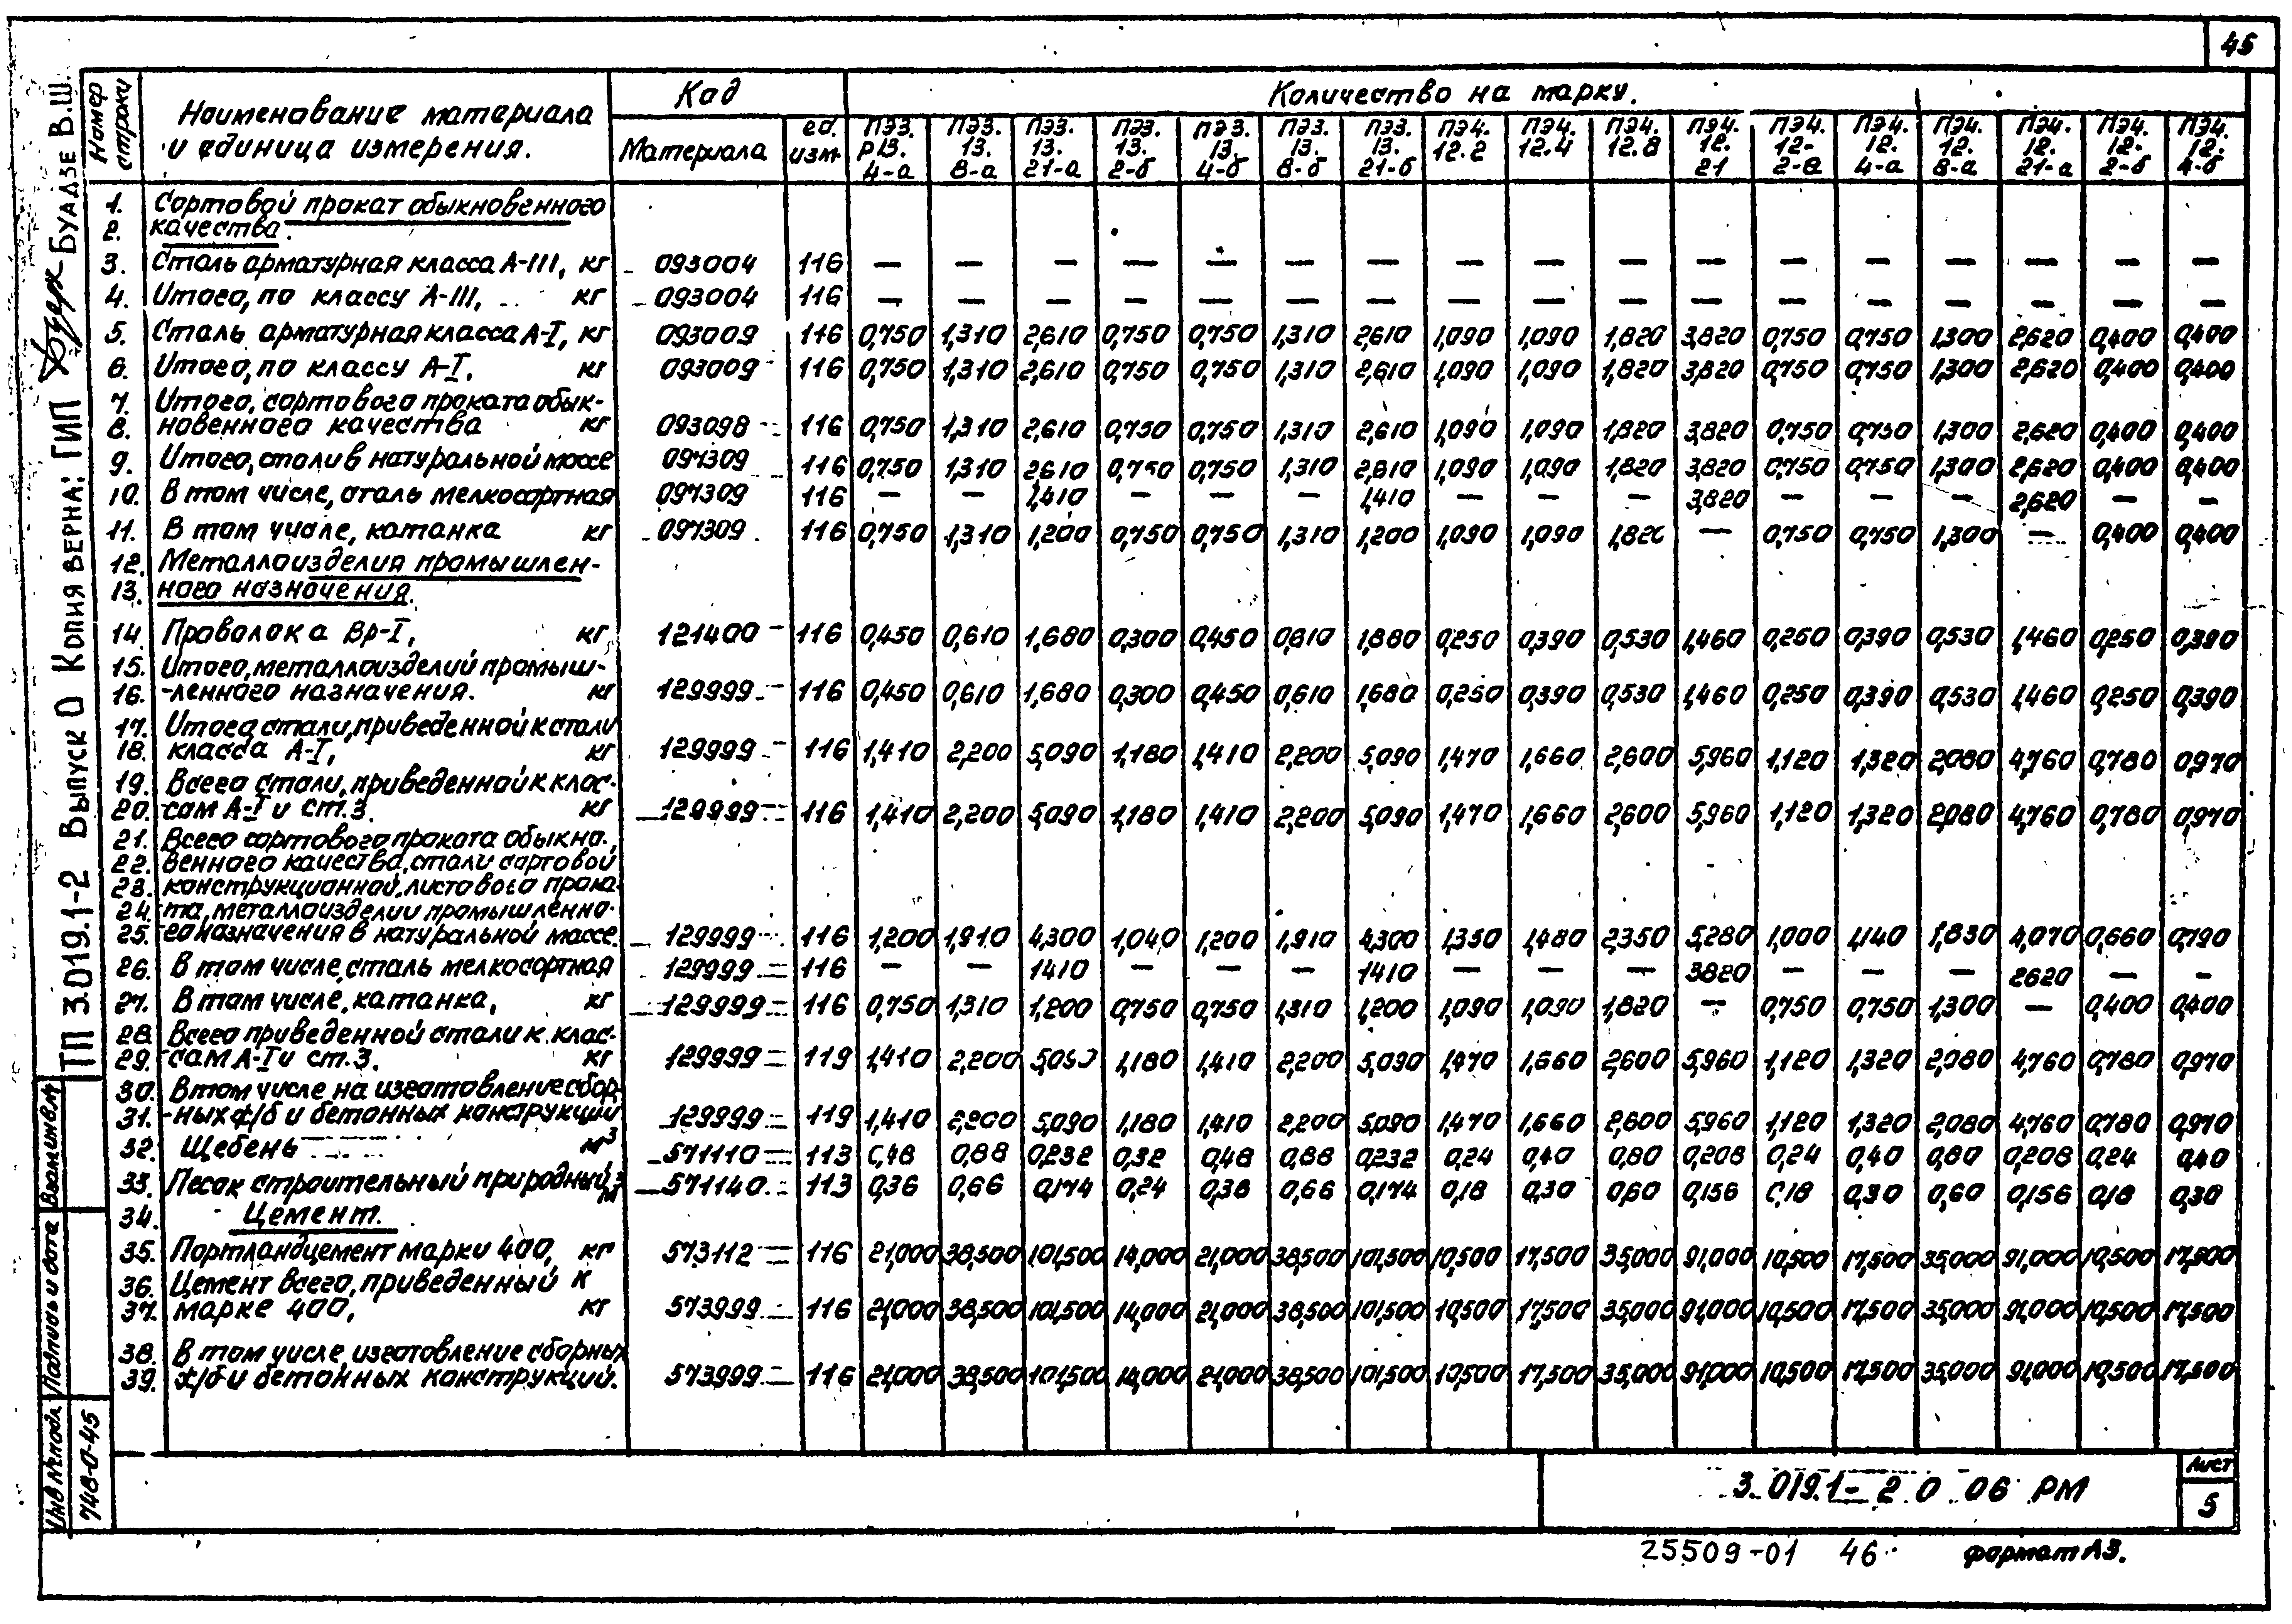 45
Номер строки
Наименование материала и единица измерения.
Код
Количество на марку.
Материала
ед. изм.
ПЭ3. Р13. 4-а
ПЭ3. 13. 8-а
ПЭ3. 13. 21-а
ПЭ3. 13. 2-б
ПЭ3. 13. 4-б
ПЭ3. 13. 8-б
ПЭ3. 13. 21-б
ПЭ4. 12.2
ПЭ4. 12.4
ПЭ4. 12.8
ПЭ4. 12. 21
ПЭ4. 12- 2-а
ПЭ4. 12. 4-а
ПЭ4. 12. 8-а
ПЭ4. 12. 21-а
ПЭ4. 12- 2-б
ПЭ4. 12. 4-б
1. Сортовой прокат обыкновенного
2. качества.
3. Сталь арматурная класса А-III, кг 093004 116 — — — — — — — — — — — — — — — — —
4. Итого, по классу А-III, кг 093004 116 — — — — — — — — — — — — — — — — —
5. Сталь арматурная класса А-I, кг 093009 116 0,750 1,310 2,610 0,750 0,750 1,310 2,610 1,090 1,090 1,820 3,820 0,750 0,750 1,300 2,620 0,400 0,400
6. Итого, по классу А-I, кг 093009 116 0,750 1,310 2,610 0,750 0,750 1,310 2,610 1,090 1,090 1,820 3,820 0,750 0,750 1,300 2,620 0,400 0,400
7. Итого, сортового проката обык-
8. новенного качества кг 093098 116 0,750 1,310 2,610 0,750 0,750 1,310 2,610 1,090 1,090 1,820 3,820 0,750 0,750 1,300 2,620 0,400 0,400
9. Итого, стали в натуральной массе 097309 116 0,750 1,310 2,610 0,750 0,750 1,310 2,610 1,090 1,090 1,820 3,820 0,750 0,750 1,300 2,620 0,400 0,400
10. В том числе, сталь мелкосортная 097309 116 — — 1,410 — — — 1,410 — — — 3,820 — — — 2,620 — —
11. В том числе, катанка кг 097309 116 0,750 1,310 1,200 0,750 0,750 1,310 1,200 1,090 1,090 1,820 — 0,750 0,750 1,300 — 0,400 0,400
12. Металлоизделия промышлен-
13. ного назначения.
14. Проволока Вр-I, кг 121400 116 0,450 0,610 1,680 0,300 0,450 0,610 1,880 0,250 0,390 0,530 1,460 0,250 0,390 0,530 1,460 0,250 0,390
15. Итого, металлоизделий промыш-
16. -ленного назначения. кг 129999 116 0,450 0,610 1,680 0,300 0,450 0,610 1,680 0,250 0,390 0,530 1,460 0,250 0,390 0,530 1,460 0,250 0,390
17. Итого стали, приведенной к стали
18. класса А-I, кг 129999 116 1,410 2,200 5,090 1,180 1,410 2,200 5,090 1,470 1,660 2,600 5,960 1,120 1,320 2,080 4,760 0,780 0,970
19. Всего стали, приведенной к клас-
20. сам А-I и ст.3. кг 129999 116 1,410 2,200 5,090 1,180 1,410 2,200 5,090 1,470 1,660 2,600 5,960 1,120 1,320 2,080 4,760 0,780 0,970
21. Всего сортового проката обыкно-
22. венного качества, стали сортовой
23. конструкционной, листового прока-
24. та, металлоизделий промышленно-
25. го назначения в натуральной массе. 129999 116 1,200 1,910 4,300 1,040 1,200 1,910 4,300 1,350 1,480 2,350 5,280 1,000 1,140 1,830 4,070 0,660 0,790
26. В том числе, сталь мелкосортная 129999 116 — — 1410 — — — 1410 — — — 3820 — — — 2620 — —
27. В том числе, катанка, кг 129999 116 0,750 1,310 1,200 0,750 0,750 1,310 1,200 1,090 1,090 1,820 — 0,750 0,750 1,300 — 0,400 0,400
28. Всего приведенной стали к клас-
29. сам А-I и ст.3. кг 129999 119 1,410 2,200 5,090 1,180 1,410 2,200 5,090 1,470 1,660 2,600 5,960 1,120 1,320 2,080 4,760 0,780 0,970
30. В том числе на изготовление сбор-
31. -ных ж/б и бетонных конструкций 129999 119 1,410 2,200 5,090 1,180 1,410 2,200 5,090 1,470 1,660 2,600 5,960 1,120 1,320 2,080 4,760 0,780 0,970
32. Щебень м³ 571110 113 0,48 0,88 0,232 0,32 0,48 0,88 0,232 0,24 0,40 0,80 0,208 0,24 0,40 0,80 0,208 0,24 0,40
33. Песок строительный природный, м³ 571140 113 0,36 0,66 0,174 0,24 0,36 0,66 0,174 0,18 0,30 0,60 0,156 0,18 0,30 0,60 0,156 0,18 0,30
34. Цемент.
35. Портландцемент марки 400, кг 573112 116 21,000 38,500 101,500 14,000 21,000 38,500 101,500 10,500 17,500 35,000 91,000 10,500 17,500 35,000 91,000 10,500 17,500
36. Цемент всего, приведенный к
37. марке 400, кг 573999 116 21,000 38,500 101,500 14,000 21,000 38,500 101,500 10,500 17,500 35,000 91,000 10,500 17,500 35,000 91,000 10,500 17,500
38. В том числе, изготовление сборных
39. ж/б и бетонных конструкций. 573999 116 21,000 38,500 101,500 14,000 21,000 38,500 101,500 10,500 17,500 35,000 91,000 10,500 17,500 35,000 91,000 10,500 17,500
3.019.1-2.0 06 РМ
Лист
5
25509-01 46 формат А3.
ТП 3.019.1-2 Выпуск 0 Копия верна: ГИП Буадзе В.Ш.
Взам.инв.№
Подпись и дата
Инв № подл.
748-0-45